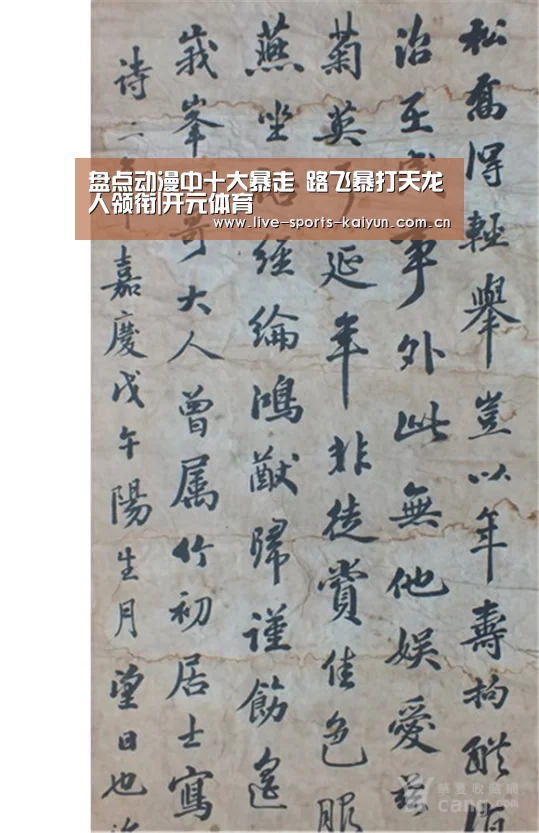 盘点动漫中十大暴走 路飞暴打天龙
人领衔|开元体育
www.live-sports-kaiyun.com.cn
松喬得輕舉豈以年壽拘
治至事外此無他娛愛茲
菊英延年非徒賞佳色服
燕坐經綸鴻猷歸謹飭
峩峯大人曾属竹初居士寫
诗二嘉慶戊午陽生月望日也
華夏收藏網
cang.com